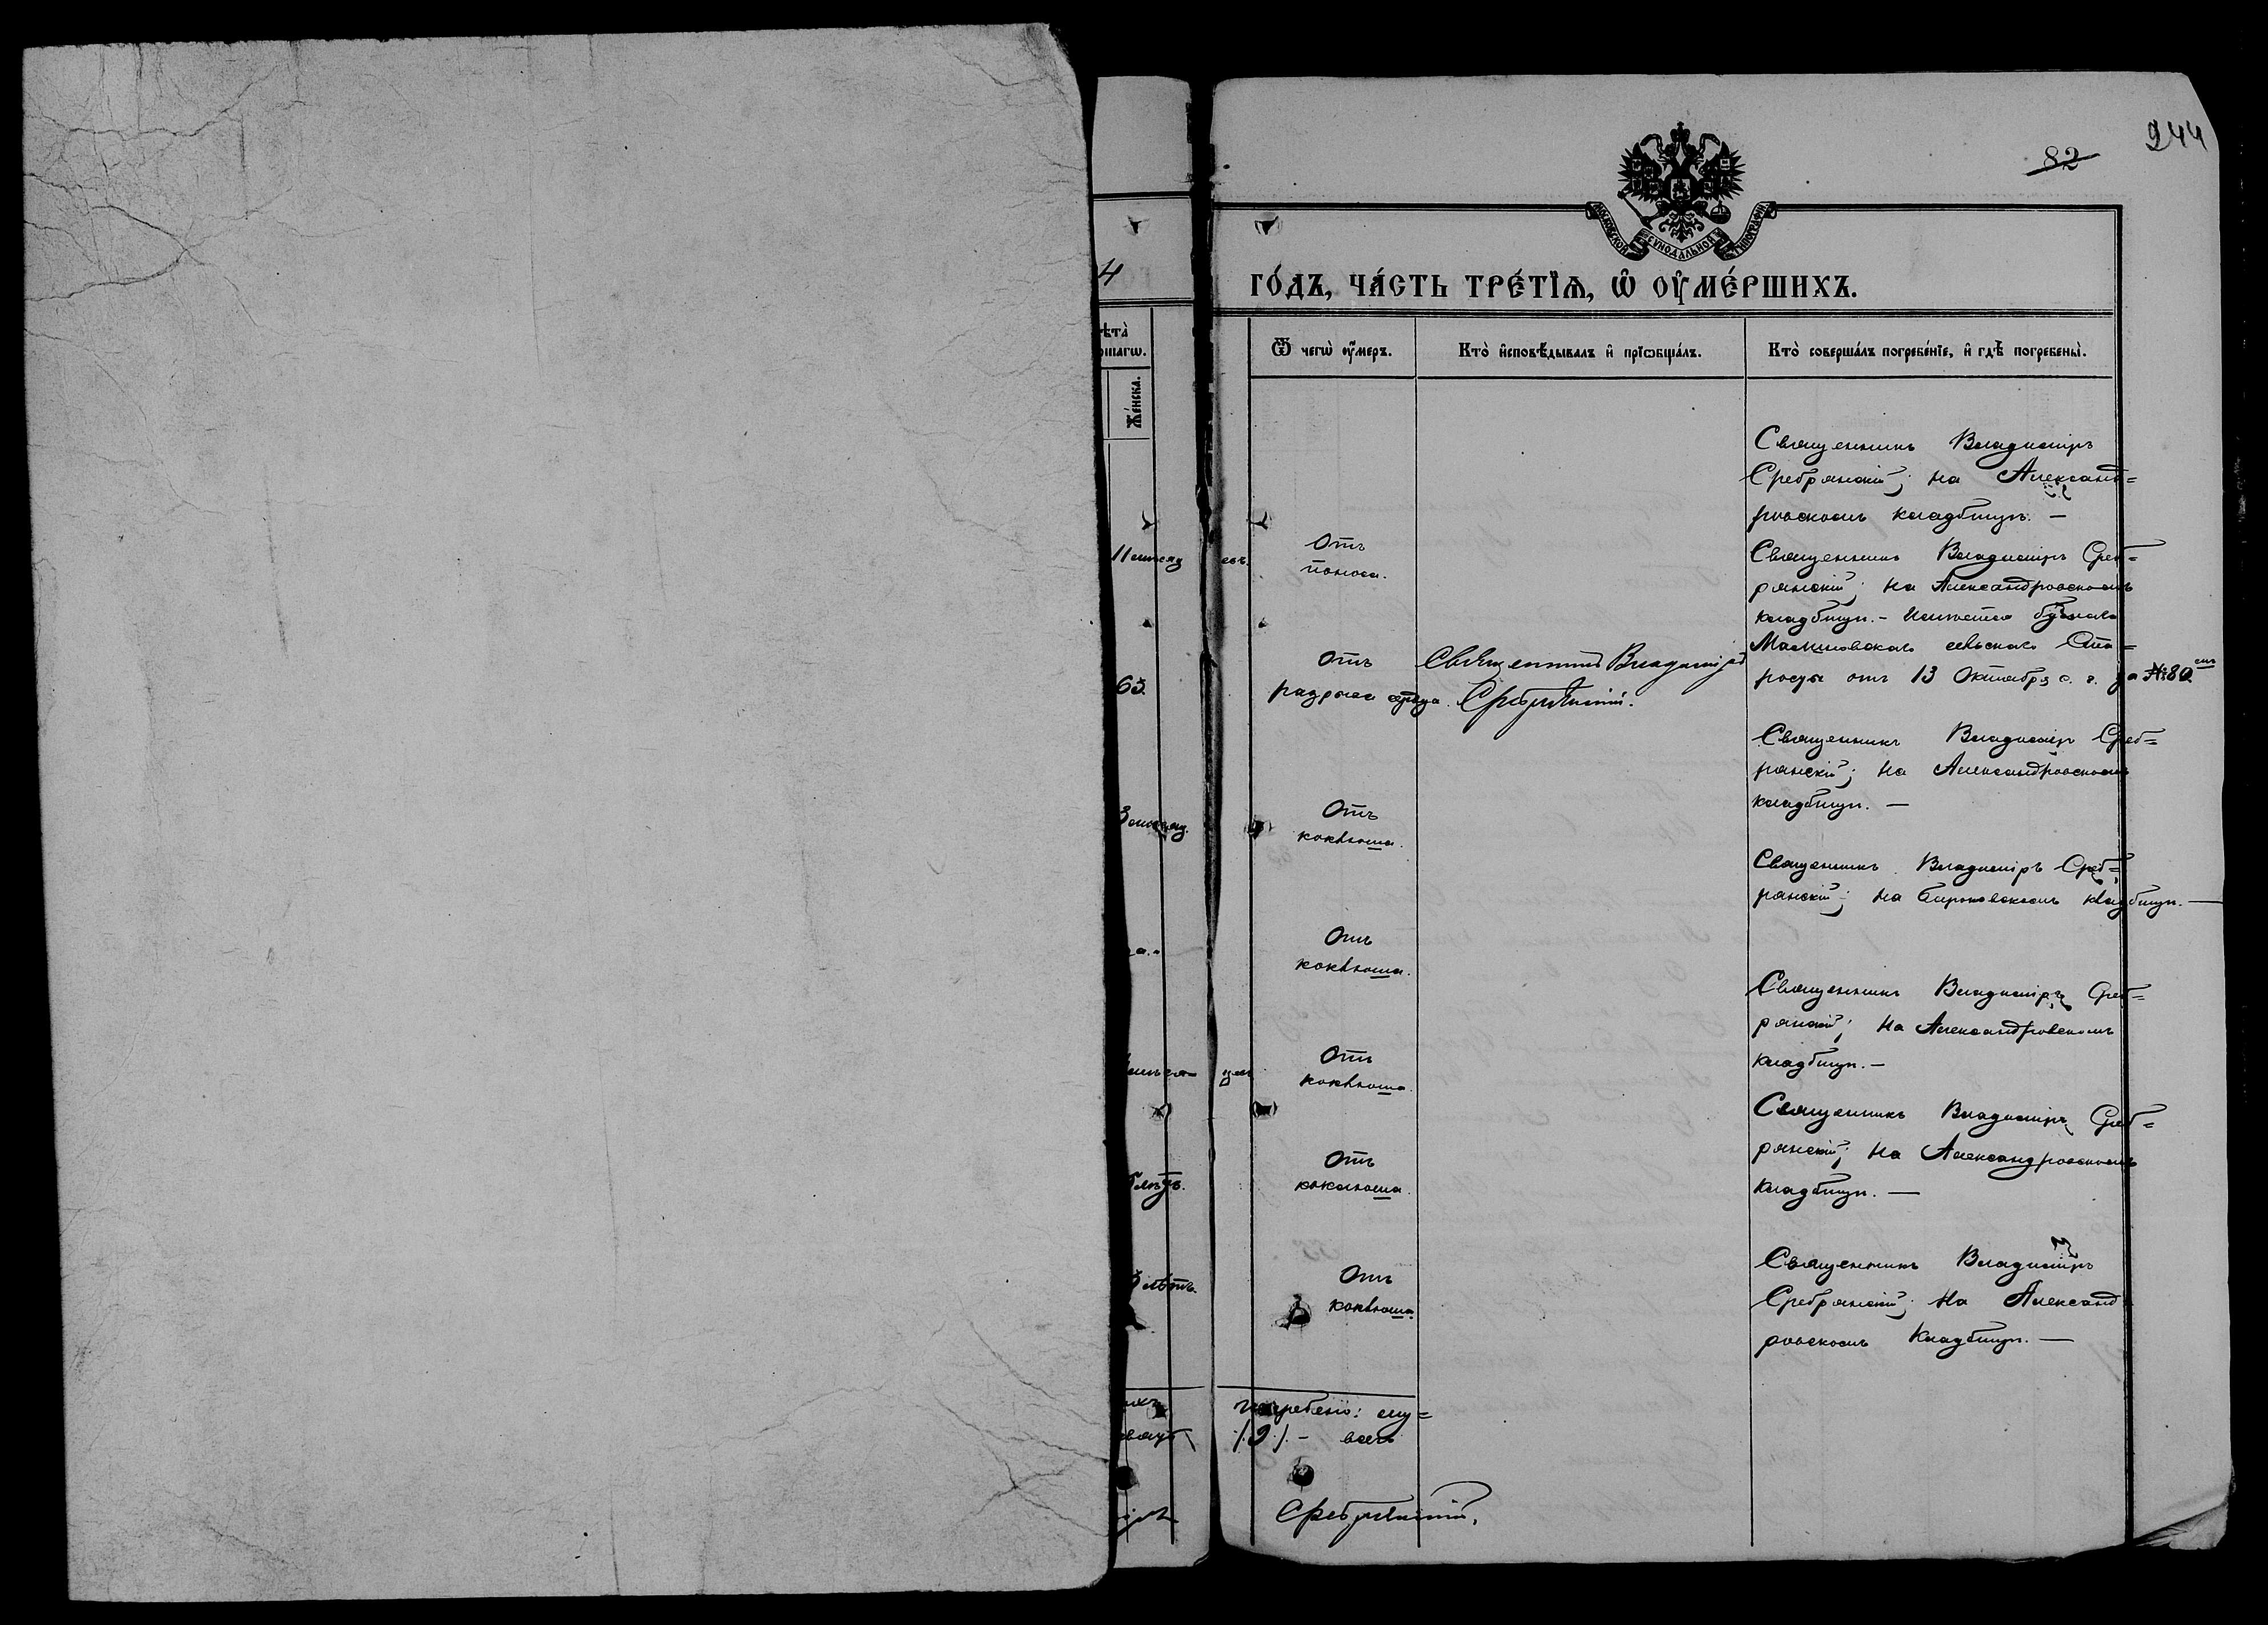 244
82
МОСКОВСКОЙ СѴНОДАЛЬНОЙ ТИПОГРАФІИ
4
ГО́ДЪ, ЧА́СТЬ ТРЕ́ТІѦ, Ѡ҆ ОУ҆МЕ́РШИХЪ.
Ѿ чегѡ̀ ᲂу҆́меръ.
Кто̀ и҆сповѣ́дывалъ и҆ прїѡбща́лъ.
Кто̀ соверша́лъ погребе́нїе, и҆ гдѣ̀ погребены̀.
Же́нска.
Священникъ Владиміръ
Сребрянскій; на Александ=
ровскомъ кладбищѣ. —
Отъ
поноса.
Священникъ Владиміръ Среб=
рянскій; на Александровскомъ
кладбищѣ. -
сельскаго Ста=
росты отъ 13 Октября с. г. за №80
65.
Отъ
сердца.
Священникъ Владиміръ
Сребрянскій.
Священникъ Владиміръ Среб=
рянскій; на Александровскомъ
кладбищѣ. —
Отъ
коклюша.
Священникъ Владиміръ Среб=
рянскій; на кладбищѣ. —
Отъ
коклюша.
Священникъ Владиміръ Среб=
рянскій; на Александровскомъ
кладбищѣ. —
Отъ
коклюша.
Священникъ Владиміръ Среб=
рянскій; на Александровскомъ
кладбищѣ. —
Отъ
коклюша.
Священникъ Владиміръ
Сребрянскій; на Александ
ровскомъ кладбищѣ. —
лѣтъ.
Отъ
коклюша.
погребено: му=
всего
Сребрянскій.